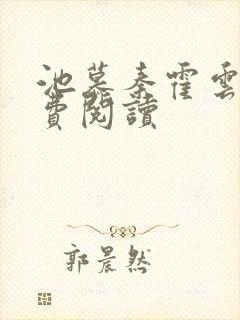 池慕秦霍雲
費閱讀
郭晨然